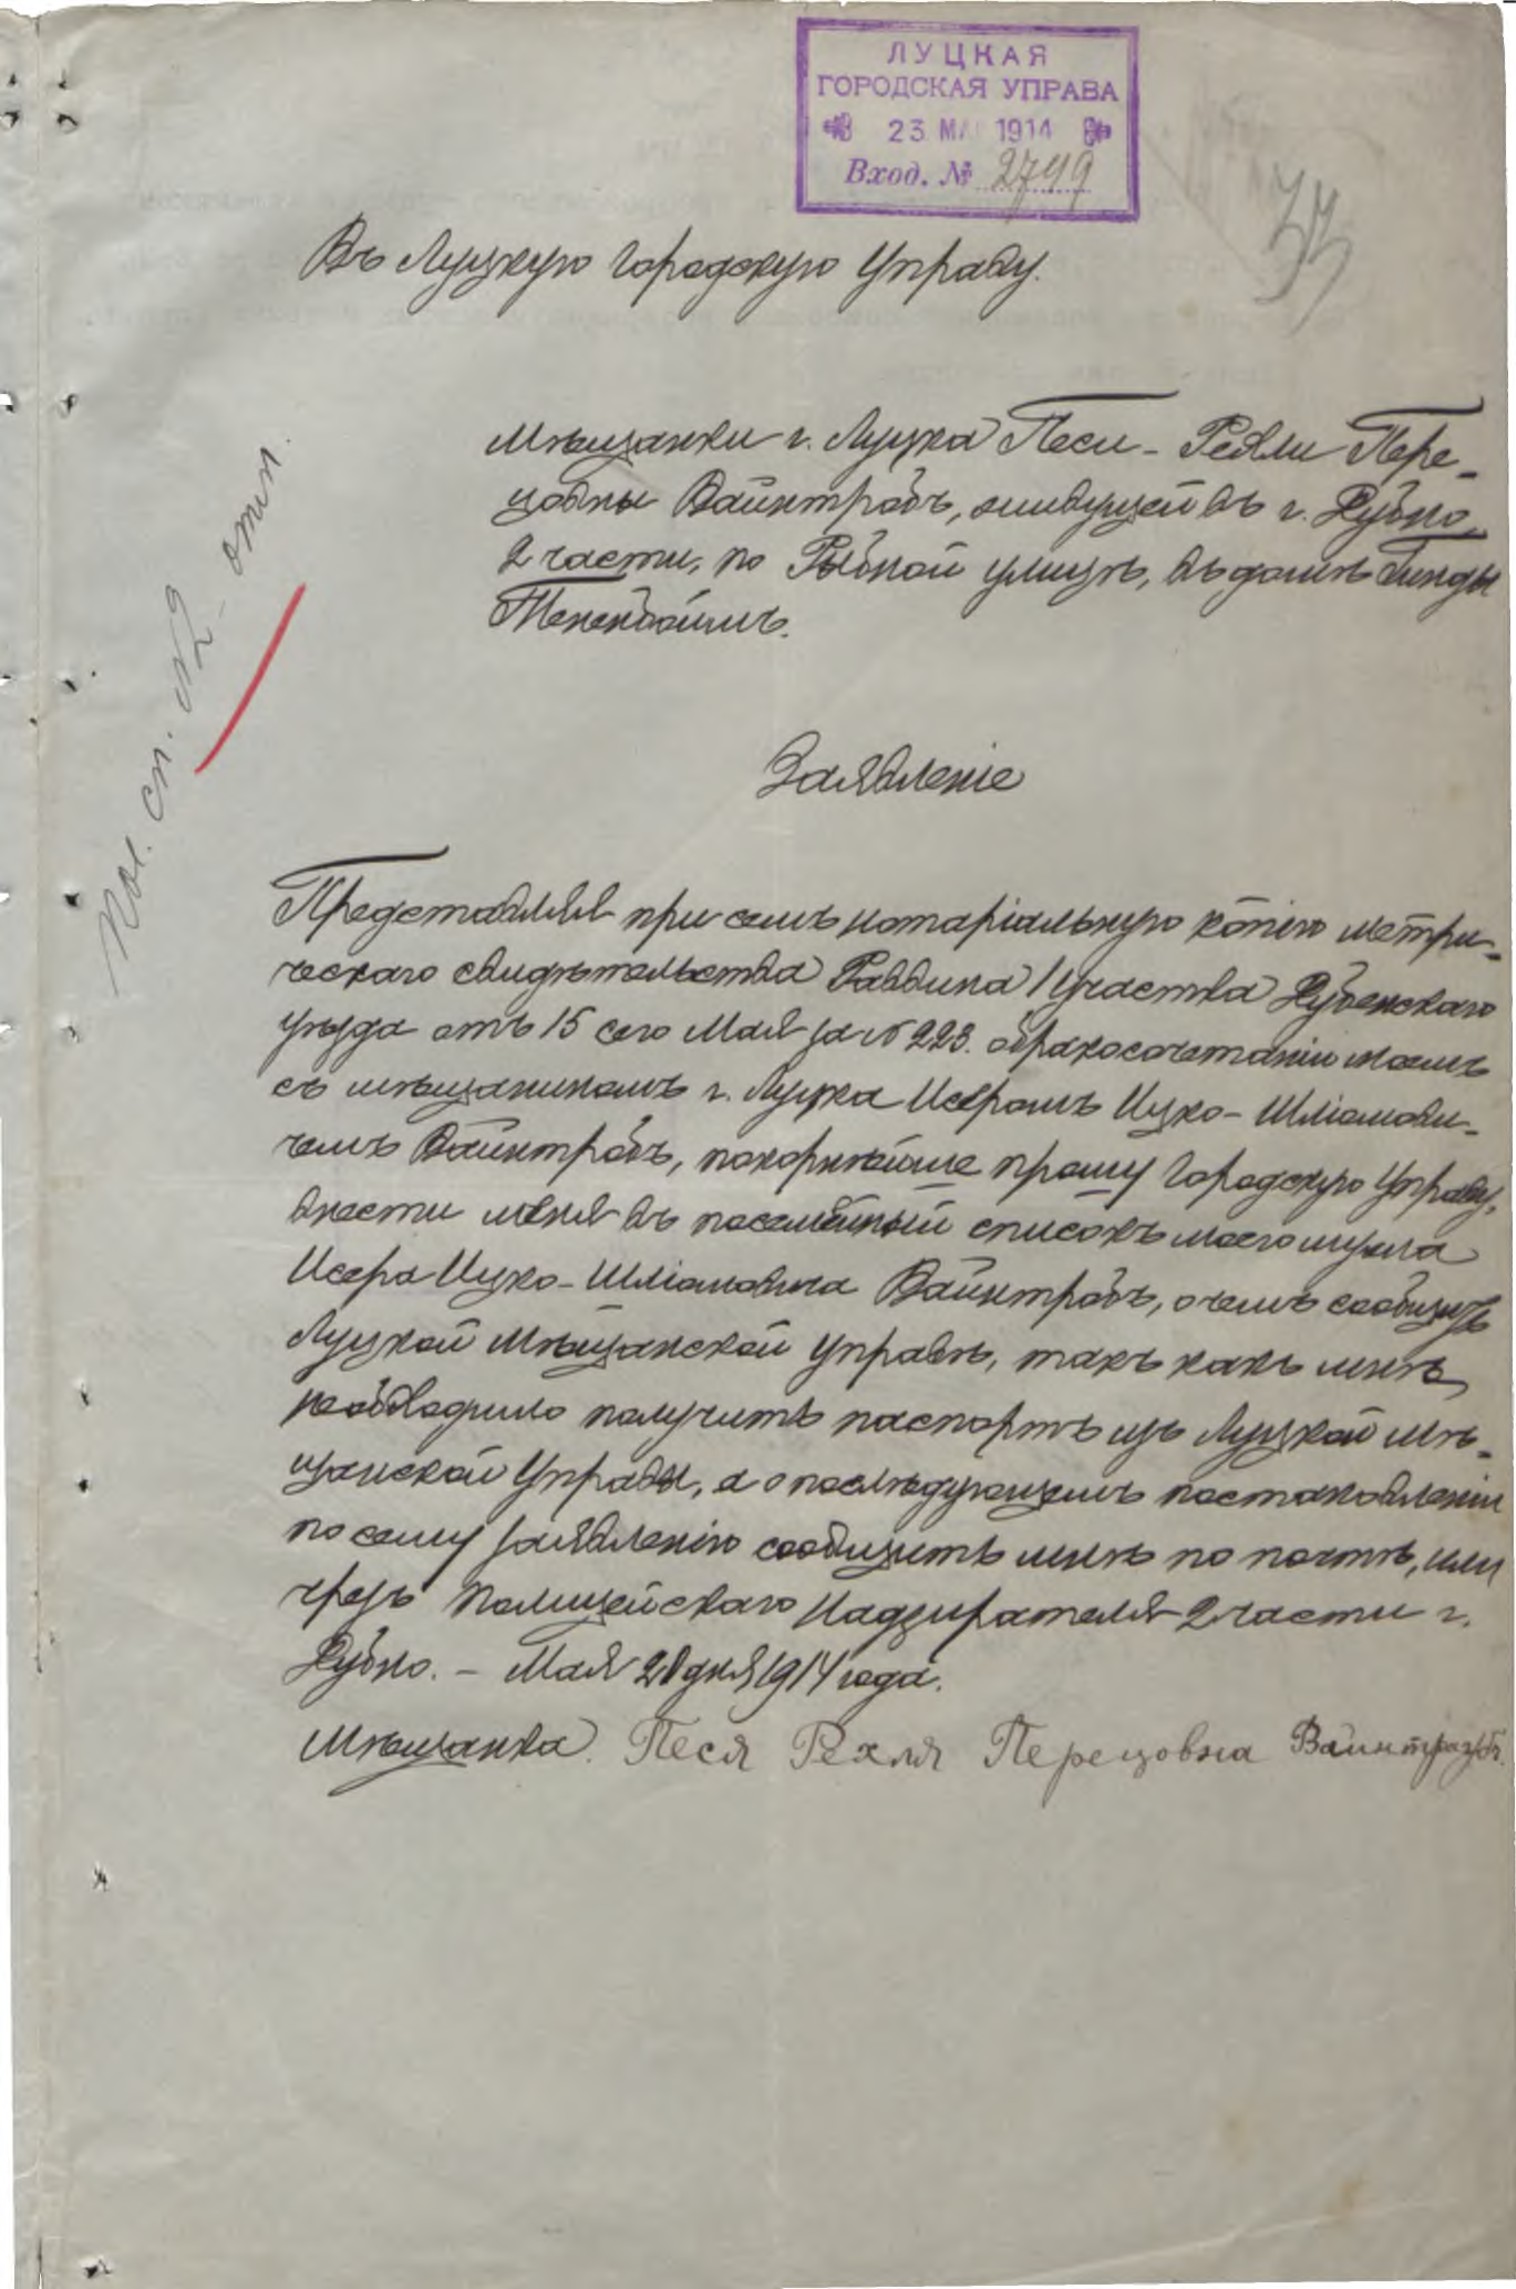 ЛУЦКАЯ
ГОРОДСКАЯ УПРАВА
23 МА 1914
Вход. № 2749
33
Въ Луцкую Городскую Управу.
Мѣщанки г. Луцка Песи-Рехли Пере-
цовны Вайнтрабъ, живущей въ г. Дубно,
2 части, по Рыбной улицѣ, въ домѣ Гинды
Тененбаумъ.
Пос. сп. №2 отп.
Заявленіе
Представляя при семъ нотаріальную копію метри-
ческаго свидѣтельства Раввина 1 участка Дубенскаго
уѣзда отъ 15 сего Мая за № 223. о бракосочетаніи моемъ
съ мѣщаниномъ г. Луцка Исеромъ Ицко-Шліомови-
чемъ Вайнтрабъ, покорнѣйше прошу Городскую Управу,
внести меня въ посемейный списокъ моего мужа
Исера Ицко-Шліомовича Вайнтрабъ, о чемъ сообщить
Луцкой Мѣщанской Управѣ, такъ какъ мнѣ
необходимо получить паспортъ изъ Луцкой Мѣ-
щанской Управы, а о послѣдующемъ постановленіи
по сему заявленію сообщить мнѣ по почтѣ, или
чрезъ Полицейскаго Надзирателя 2 части г.
Дубно. - Мая 20 дня 1914 года.
Мѣщанка. Песя Рехля Перецовна Вайнтраубъ.